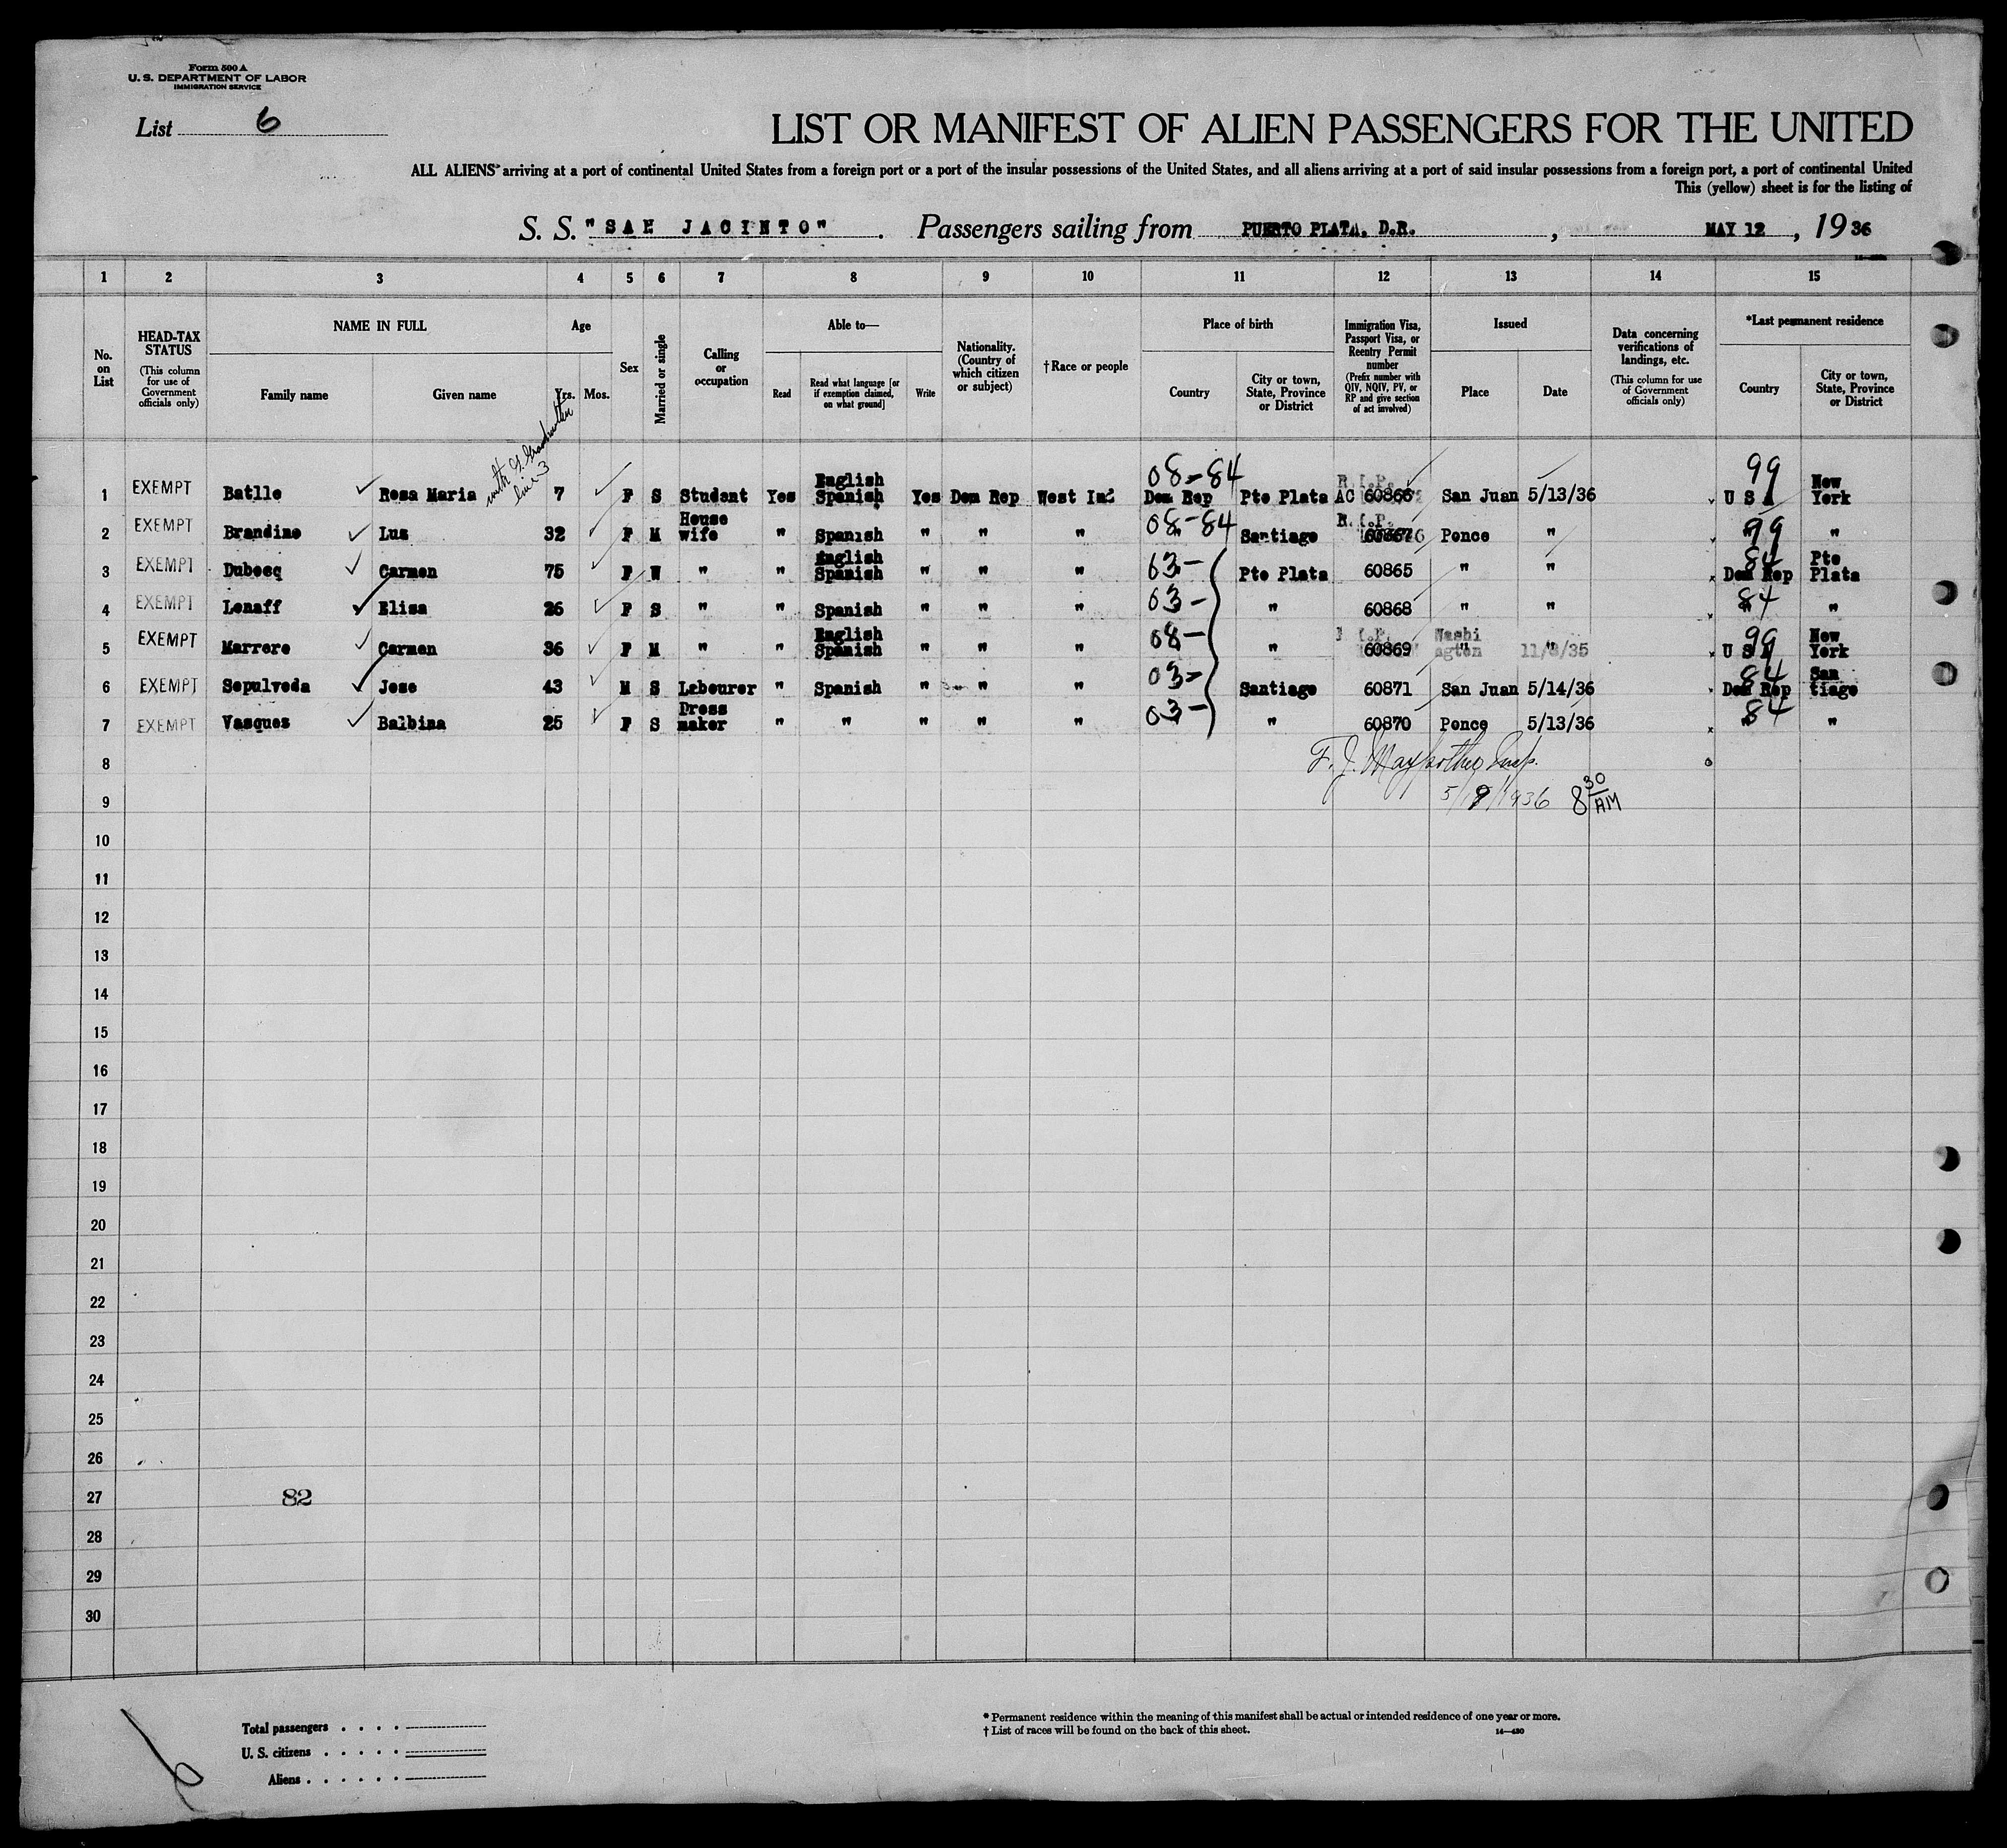 Form 500 A
U. S. DEPARTMENT OF LABOR
IMMIGRATION SERVICE
List 6
LIST OR MANIFEST OF ALIEN PASSENGERS FOR THE UNITED
ALL ALIENS arriving at a port of continental United States from a foreign port or a port of the insular possessions of the United States, and all aliens arriving at a port of said insular possessions from a foreign port, a port of continental United
This (yellow) sheet is for the listing of
S. S. "SAN JACINTO". Passengers sailing from PUERTO PLATA, D.R., MAY 12, 1936
1 2 3 4 5 6 7 8 9 10 11 12 13 14 15
No. on List
HEAD-TAX STATUS (This column for use of Government officials only)
NAME IN FULL
Family name Given name
Age
Yrs. Mos.
Sex
Married or single
Calling or occupation
Able to—
Read
Read what language [or if exemption claimed, on what ground]
Write
Nationality. (Country of which citizen or subject)
† Race or people
Place of birth
Country
City or town, State, Province or District
Immigration Visa, Passport Visa, or Reentry Permit number (Prefix number with QIV, NQIV, PV, or RP and give section of act involved)
Issued
Place Date
Data concerning verifications of landings, etc. (This column for use of Government officials only)
*Last permanent residence
Country
City or town, State, Province or District
with G. Grandmother line 3
1 EXEMPT Batlle Rosa Maria 7 F S Student Yes English Spanish Yes Dom Rep West Ind 08-84 Dom Rep Pto Plata R.I.P. AC 60866 San Juan 5/13/36 99 U S A New York
2 EXEMPT Brandino Luz 32 F M House wife " Spanish " " " 08-84 " Santiago R.I.P. 60867 Ponce " 99 " "
3 EXEMPT Dubocq Carmen 75 F W " " English Spanish " " " 03- Pto Plata 60865 " " 84 Dom Rep Pto Plata
4 EXEMPT Lenaff Elisa 26 F S " " Spanish " " " 03- " 60868 " " 84 " "
5 EXEMPT Marrero Carmen 36 F M " " English Spanish " " " 08- " 60869 Washi ngton " 11/8/35 " 99 U S A New York
6 EXEMPT Sepulveda Jose 43 M S Labourer " Spanish " " " 03- Santiago 60871 San Juan 5/14/36 84 Dom Rep San tiago
7 EXEMPT Vasques Balbina 25 F S Dress maker " " " " " 03- " 60870 Ponce 5/13/36 84 " "
8 F. J. Insp.
9 5/19/1936 8 30 AM
10
11
12
13
14
15
16
17
18
19
20
21
22
23
24
25
26
27 82
28
29
30
6
Total passengers
U. S. citizens
Aliens
* Permanent residence within the meaning of this manifest shall be actual or intended residence of one year or more.
† List of races will be found on the back of this sheet. 14—430